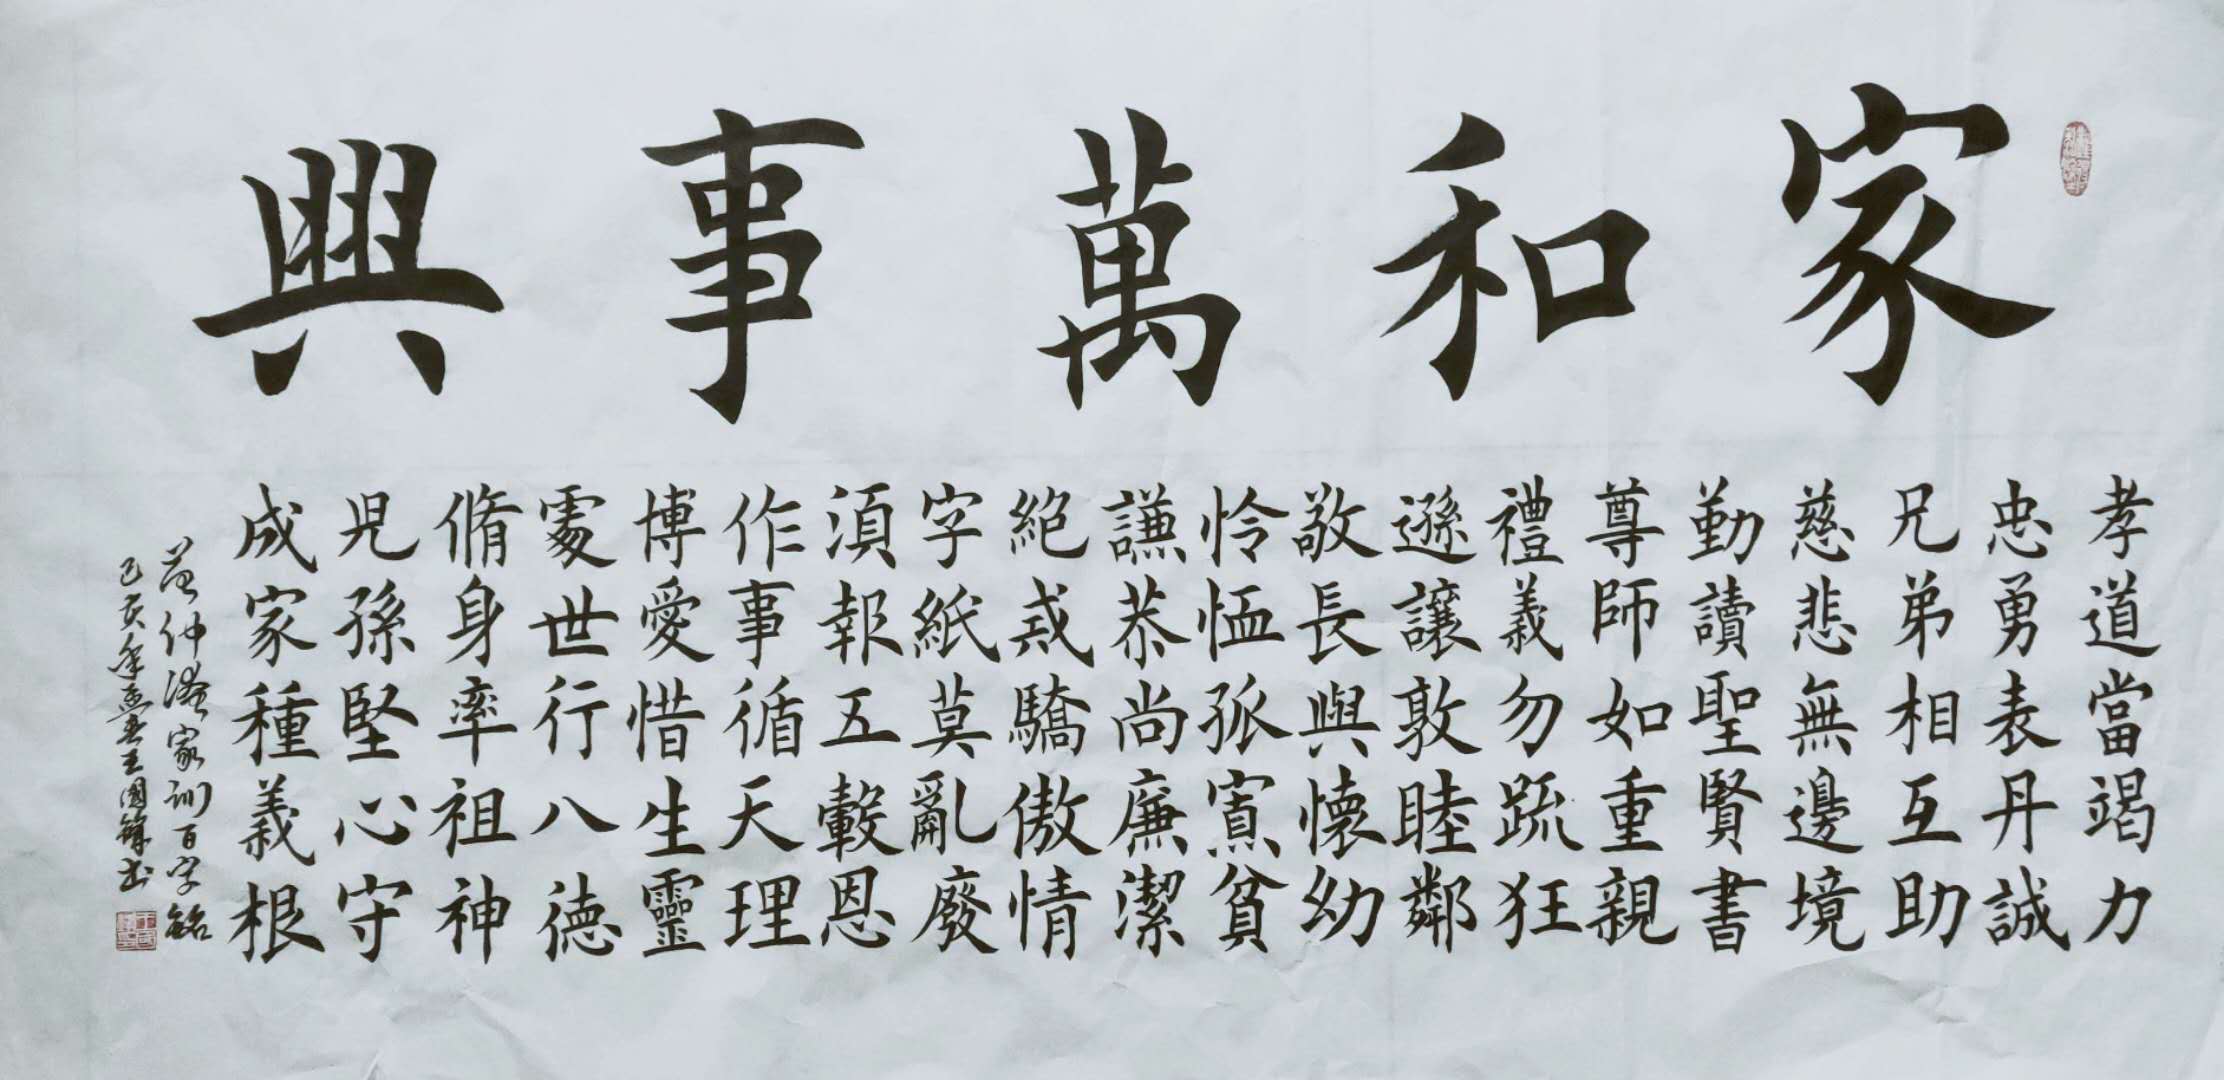 家和萬事興
孝道當竭力
忠勇表丹誠
兄弟相互助
慈悲無邊境
勤讀聖賢書
尊師如重親
禮義勿疏狂
遜讓敦睦鄰
敬長與懷幼
怜恤孤寡貧
謙恭尚廉潔
絕戒驕傲情
字紙莫亂廢
須報五穀恩
作事循天理
博愛惜生靈
處世行八德
脩身率祖神
兒孫堅心守
成家種義根
范仲淹家訓百字銘
己亥年孟春王國鋒书